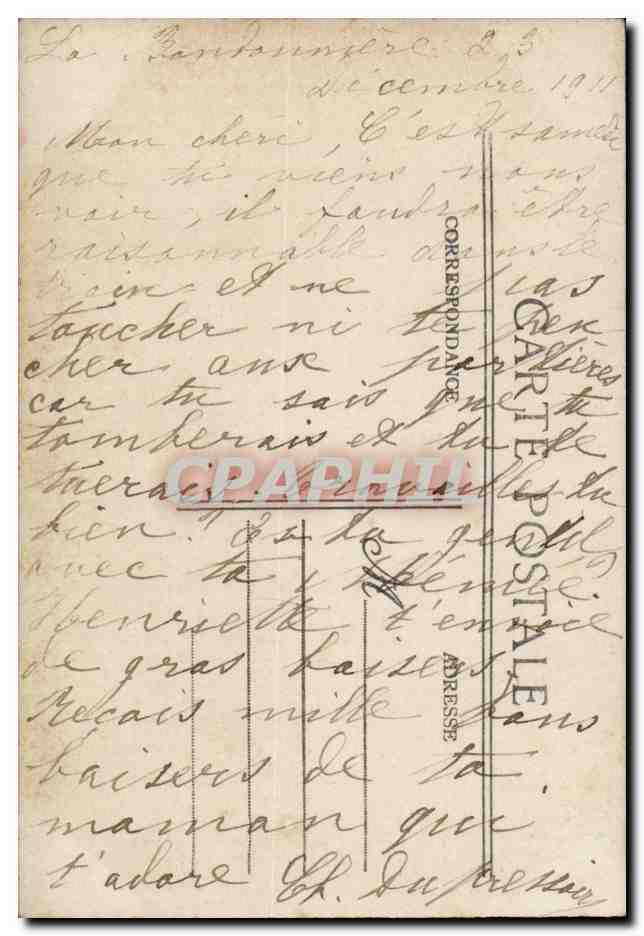 La Bandonnière 23
décembre 1911
Mon chéri, C'est samedi
que tu viens nous
voir, il faudra être
raisonnable dans le
train et ne pas
toucher ni te pen
cher aux portières
car tu sais que tu
tomberais et tu te
tuerais. Travailles tu
bien? Es tu gentil
avec ta mémé?
Henriette t'envoie
de gros baisers.
Reçois mille bons
baisers de ta
maman qui
t'adore Ch. Dupressoir
CARTE POSTALE
CORRESPONDANCE
ADRESSE
M
CPAPHIL